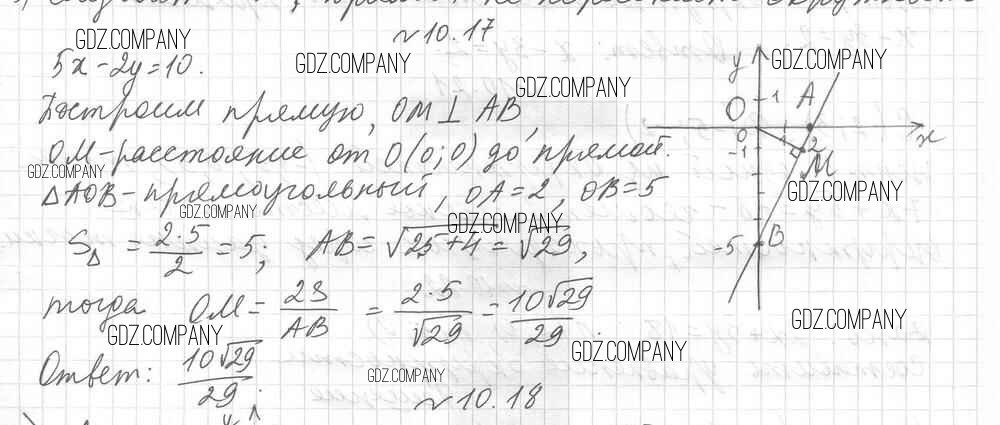 №10.17
GDZ.COMPANY
5x - 2y = 10.
GDZ.COMPANY
GDZ.COMPANY
GDZ.COMPANY
Построим прямую, OM ⊥ AB,
OM - расстояние от O(0;0) до прямой.
GDZ.COMPANY
△AOB - прямоугольный, OA = 2, OB = 5
GDZ.COMPANY
GDZ.COMPANY
S△ = 2·5/2 = 5; AB = √25+4 = √29,
тогда OM = 2S/AB = 2·5/√29 = 10√29/29.
GDZ.COMPANY
GDZ.COMPANY
Ответ: 10√29/29.
GDZ.COMPANY
№10.18
y
O
1
A
0
2
x
-1
M
GDZ.COMPANY
-5
B
GDZ.COMPANY
y